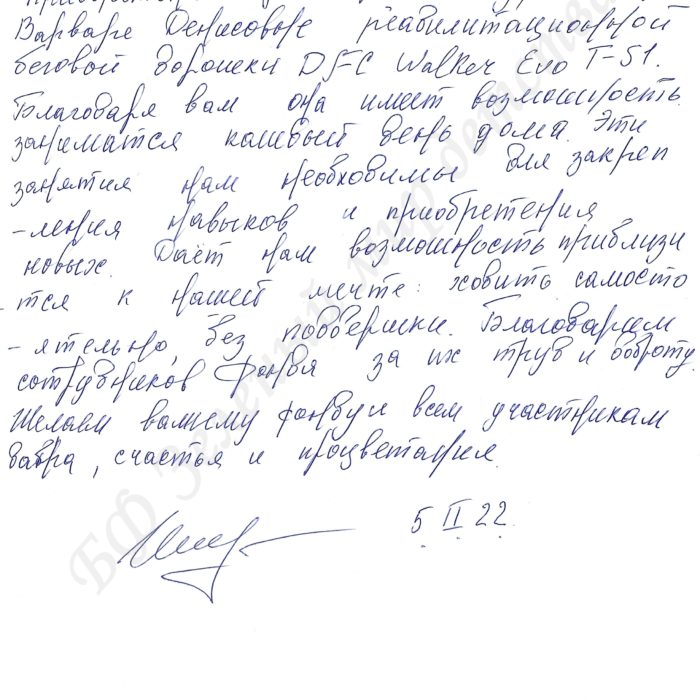 Варваре Денисовне реабилитационной
беговой дорожки DFC Walker Evo T-S1.
Благодаря вам она имеет возможность
заниматся каждый день дома. Эти
занятия нам необходимы для закреп
-ления навыков и приобретения
новых. Даёт нам возможность приблизи
-тся к нашей мечте: ходить самосто
-ятельно, без поддержки. Благодарим
сотрудников фонда за их труд и доброту.
Желаем вашему фонду и всем участникам
добра, счастья и процветания.
5 II 22.
БФ Зеленый мир детства